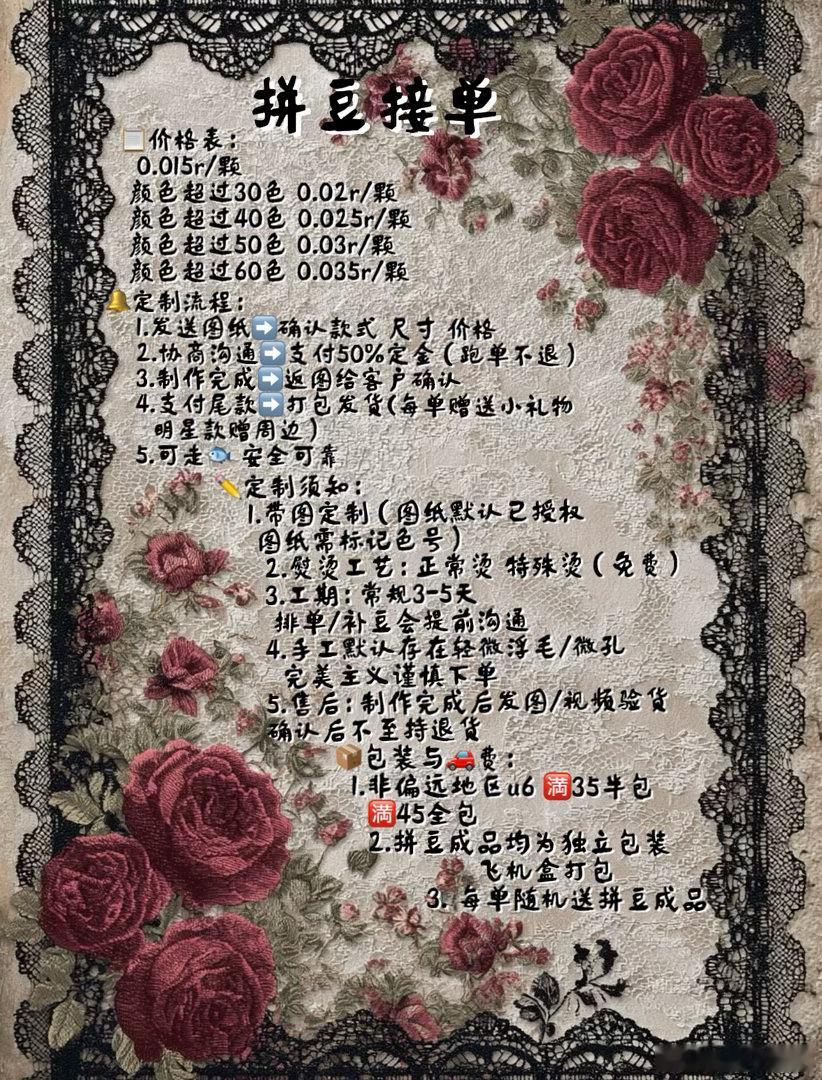 拼豆接单
价格表：
0.015r/颗
颜色超过30色 0.02r/颗
颜色超过40色 0.025r/颗
颜色超过50色 0.03r/颗
颜色超过60色 0.035r/颗
🔔定制流程：
1.发送图纸➡️确认款式 尺寸 价格
2.协商沟通➡️支付50%定金（跑单不退）
3.制作完成➡️返图给客户确认
4.支付尾款➡️打包发货(每单赠送小礼物
明星款赠周边)
5.可走🐟 安全可靠
✏️定制须知：
1.带图定制（图纸默认已授权
图纸需标记色号）
2.熨烫工艺：正常烫 特殊烫（免费）
3.工期：常规3-5天
排单/补豆会提前沟通
4.手工默认存在轻微浮毛/微孔
完美主义谨慎下单
5.售后：制作完成后发图/视频验货
确认后不至持退货
📦包装与🚗费：
1.非偏远地区u6 🈵35半包
🈵45全包
2.拼豆成品均为独立包装
飞机盒打包
3. 每单随机送拼豆成品